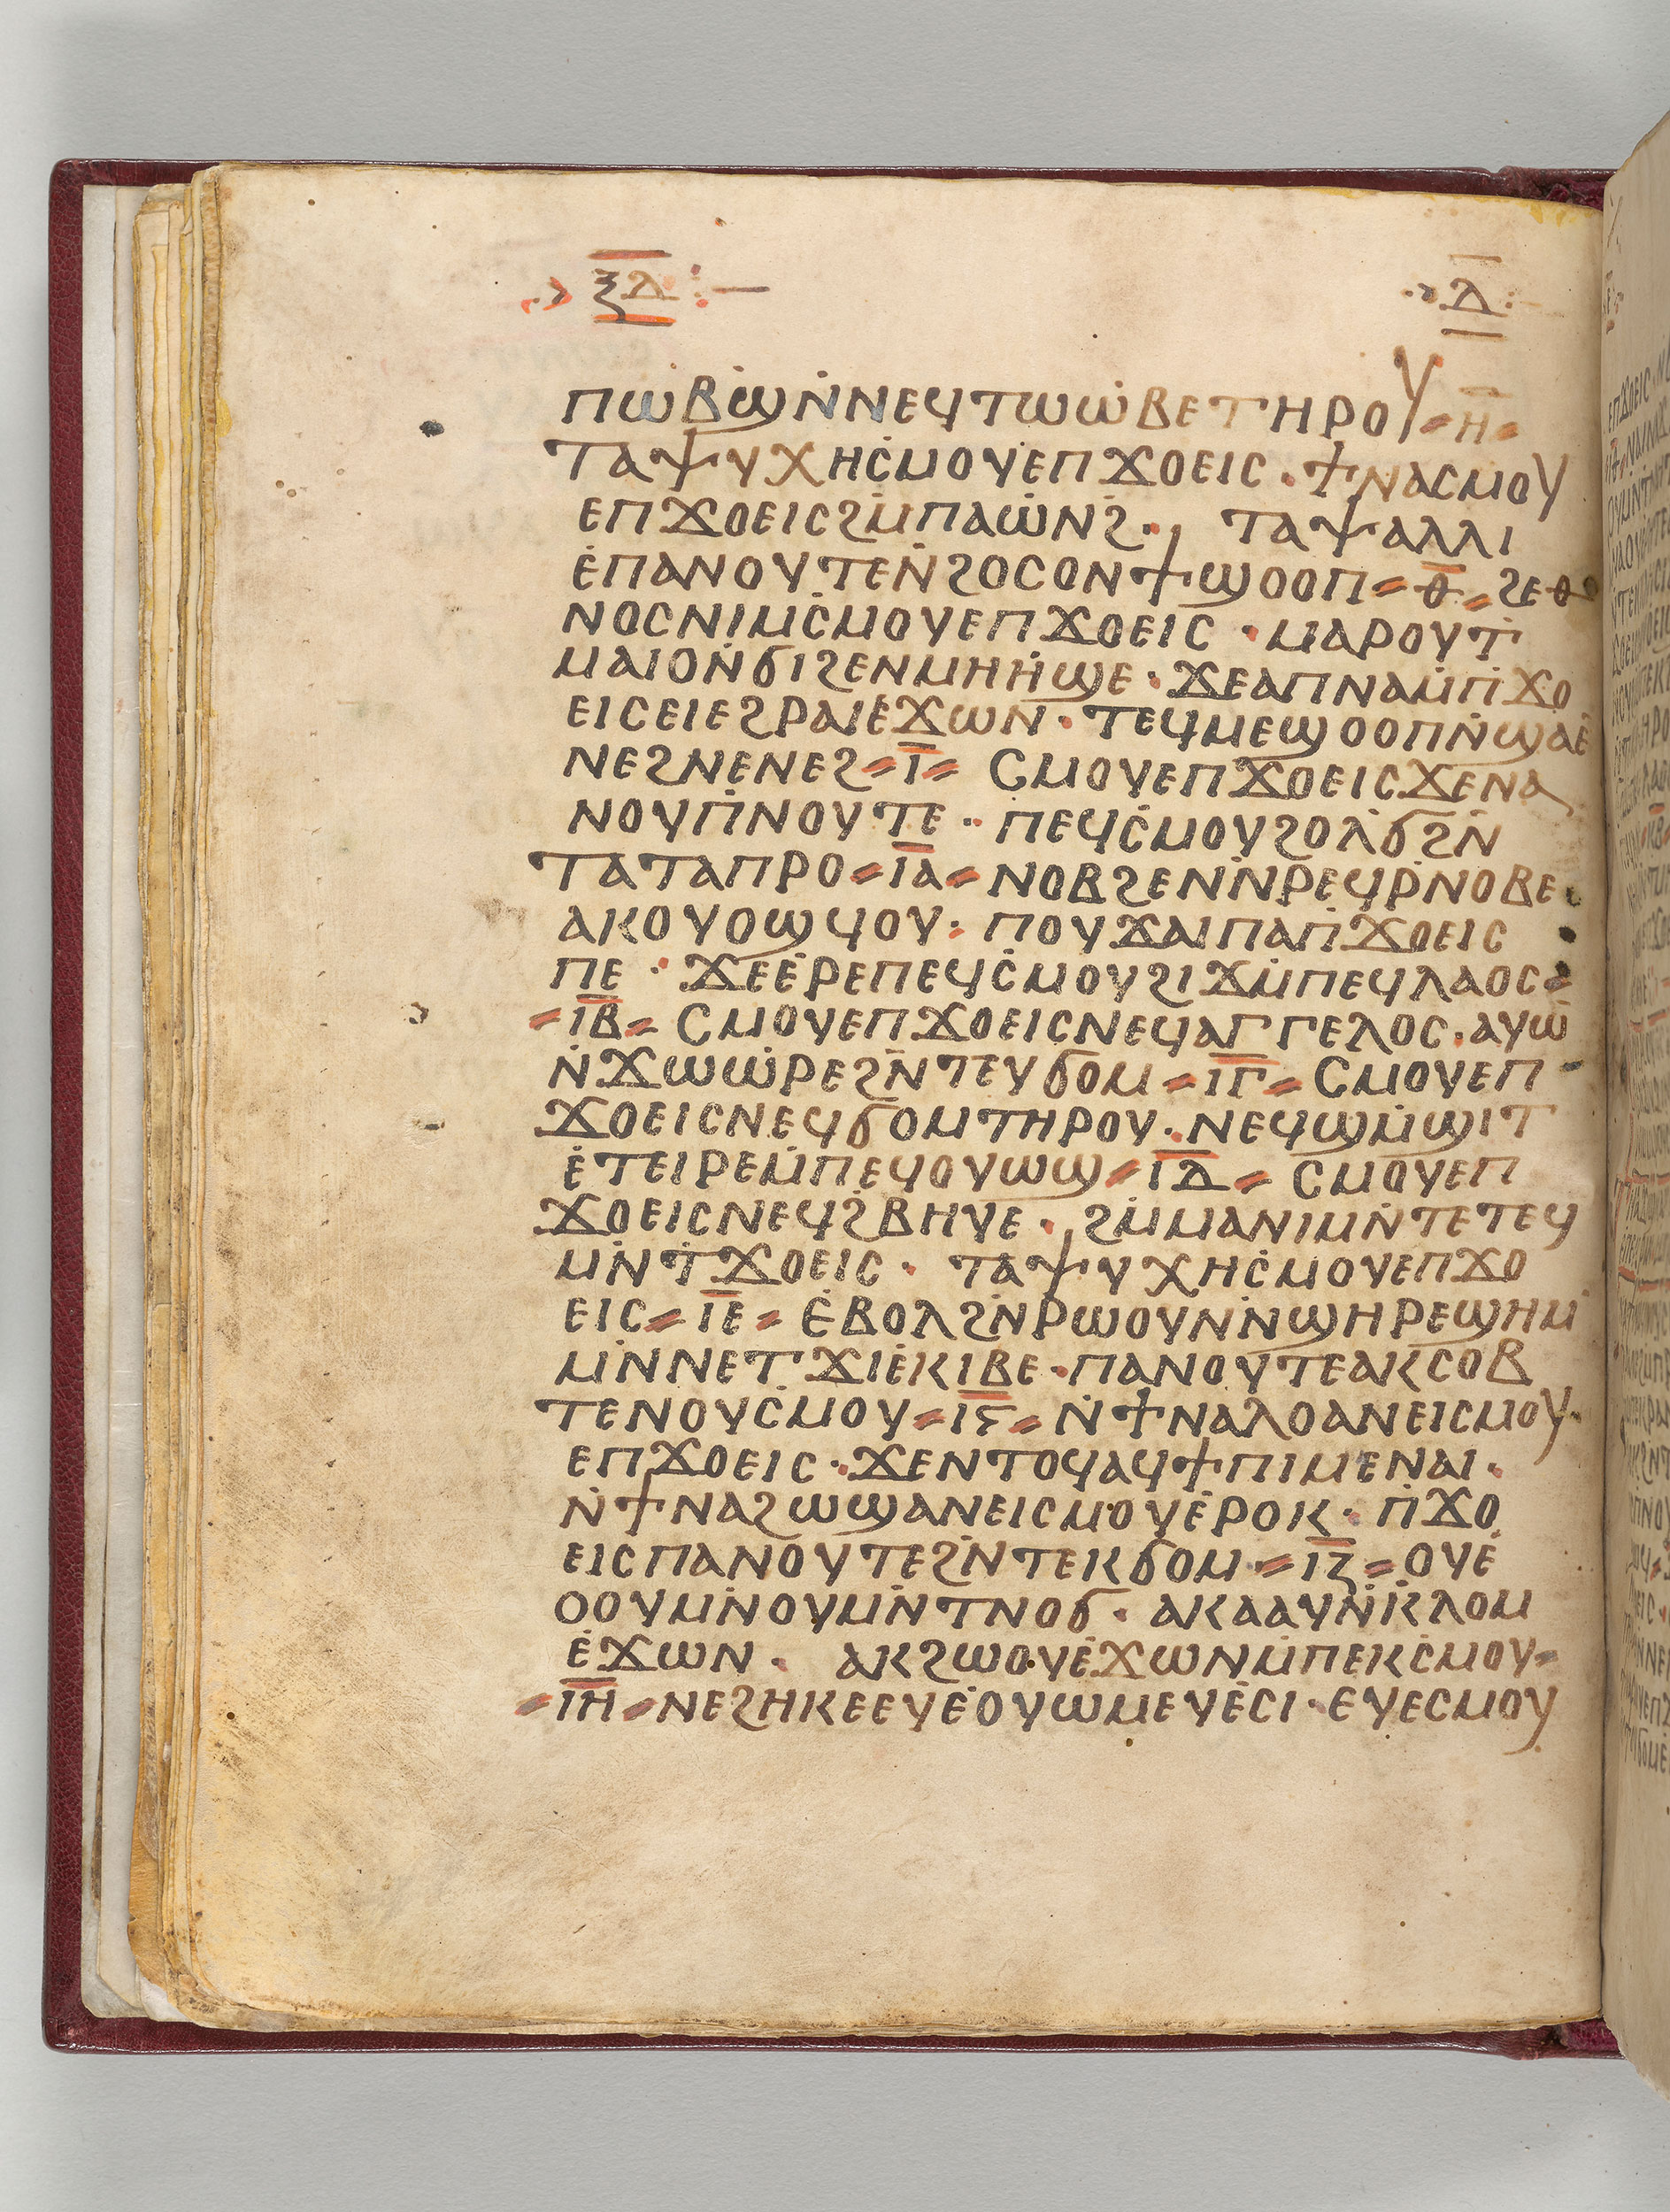 ⲝⲇ ⲇ
ⲡⲱⲃϣⲛⲛⲉϥⲧⲱⲱⲃⲉⲧⲏⲣⲟⲩ ⲏ̅
ⲧⲁⲯⲩⲭⲏⲥⲙⲟⲩⲉⲡϫⲟⲉⲓⲥ · ϯⲛⲁⲥⲙⲟⲩ
ⲉⲡϫⲟⲉⲓⲥϩⲙⲡⲁⲱⲛϩ · ⲧⲁⲯⲁⲗⲗⲓ
ⲉⲡⲁⲛⲟⲩⲧⲉⲛϩⲟⲥⲟⲛϯϣⲟⲟⲡ ⲑ̅ ϩⲉⲑ
ⲛⲟⲥⲛⲓⲙⲥⲙⲟⲩⲉⲡϫⲟⲉⲓⲥ · ⲙⲁⲣⲟⲩⲧ
ⲙⲁⲓⲟⲛϭⲓϩⲉⲛⲙⲏⲏϣⲉ · ϫⲉⲁⲡⲛⲁⲙⲡϫⲟ
ⲉⲓⲥⲉⲓⲉϩⲣⲁⲓⲉϫⲱⲛ · ⲧⲉϥⲙⲉϣⲟⲟⲡⲛϣⲁⲉ
ⲛⲉϩⲛⲉⲛⲉϩ ⲓ̅ ⲥⲙⲟⲩⲉⲡϫⲟⲉⲓⲥϫⲉⲛⲁ
ⲛⲟⲩⲡⲛⲟⲩⲧⲉ · ⲡⲉϥⲥⲙⲟⲩϩⲟⲗϭϩⲛ
ⲧⲁⲧⲁⲡⲣⲟ ⲓ̅ⲁ̅ ⲛⲟⲃϩⲉⲛⲛⲣⲉϥⲣⲛⲟⲃⲉ
ⲁⲕⲟⲩⲟϣϥⲟⲩ · ⲡⲟⲩϫⲁⲓⲡⲁⲡϫⲟⲉⲓⲥ
ⲡⲉ · ϫⲉⲉⲣⲉⲡⲉϥⲥⲙⲟⲩϩⲓϫⲙⲡⲉϥⲗⲁⲟⲥ
ⲓ̅ⲃ̅ ⲥⲙⲟⲩⲉⲡϫⲟⲉⲓⲥⲛⲉϥⲁⲅⲅⲉⲗⲟⲥ · ⲁⲩⲱ
ⲛϫⲱⲱⲣⲉϩⲛⲧⲉⲩϭⲟⲙ ⲓ̅ⲅ̅ ⲥⲙⲟⲩⲉⲡ
ϫⲟⲉⲓⲥⲛⲉϥϭⲟⲙⲧⲏⲣⲟⲩ · ⲛⲉϥϣⲙϣⲓⲧ
ⲉⲧⲉⲓⲣⲉⲙⲡⲉϥⲟⲩⲱϣ ⲓ̅ⲇ̅ ⲥⲙⲟⲩⲉⲡ
ϫⲟⲉⲓⲥⲛⲉϥϩⲃⲏⲩⲉ · ϩⲙⲙⲁⲛⲓⲙⲛⲧⲉⲧⲉϥ
ⲙⲛⲧϫⲟⲉⲓⲥ · ⲧⲁⲯⲩⲭⲏⲥⲙⲟⲩⲉⲡϫⲟ
ⲉⲓⲥ ⲓ̅ⲉ̅ ⲉⲃⲟⲗϩⲛⲣⲱⲟⲩⲛⲛϣⲏⲣⲉϣⲏⲙ
ⲙⲛⲛⲉⲧϫⲓⲉⲕⲓⲃⲉ · ⲡⲁⲛⲟⲩⲧⲉⲁⲕⲥⲟⲃ
ⲧⲉⲛⲟⲩⲥⲙⲟⲩ ⲓ̅ⲋ̅ ⲛϯⲛⲁⲗⲟⲁⲛⲉⲓⲥⲙⲟⲩ
ⲉⲡϫⲟⲉⲓⲥ · ϫⲉⲛⲧⲟϥⲁϥϯⲡⲓⲙⲉⲛⲁⲓ ·
ⲛϯⲛⲁϩⲱϣⲁⲛⲉⲓⲥⲙⲟⲩⲉⲣⲟⲕ · ⲡϫⲟ
ⲉⲓⲥⲡⲁⲛⲟⲩⲧⲉϩⲛⲧⲉⲕϭⲟⲙ ⲓ̅ⲍ̅ ⲟⲩⲉ
ⲟⲟⲩⲙⲛⲟⲩⲙⲛⲧⲛⲟϭ · ⲁⲕⲁⲁⲩⲛⲕⲗⲟⲙ
ⲉϫⲱⲛ · ⲁⲕϩⲱⲟⲩⲉϫⲱⲛⲙⲡⲉⲕⲥⲙⲟⲩ
ⲓ̅ⲏ̅ ⲛⲉϩⲏⲕⲉⲉⲩⲉⲟⲩⲱⲙⲉⲩⲉⲥⲓ · ⲉⲩⲉⲥⲙⲟⲩ